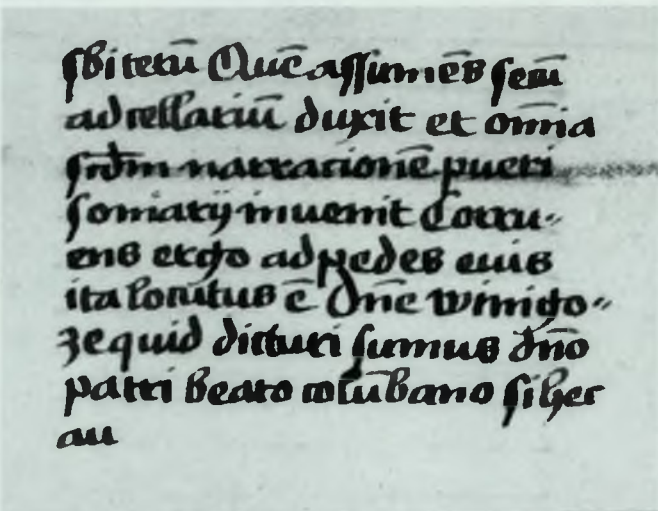 sbitetū Quē assumēs secū
ad cellariū duxit et om̄ia
scd̄m narracionē pueri
somiatj inuenit Corru„
ens ergo ad pedes euis
ita locutus ē Dn̄e winigo„
ze quid dicturi sumus dn̄o
patri beato colūbano si hec
au